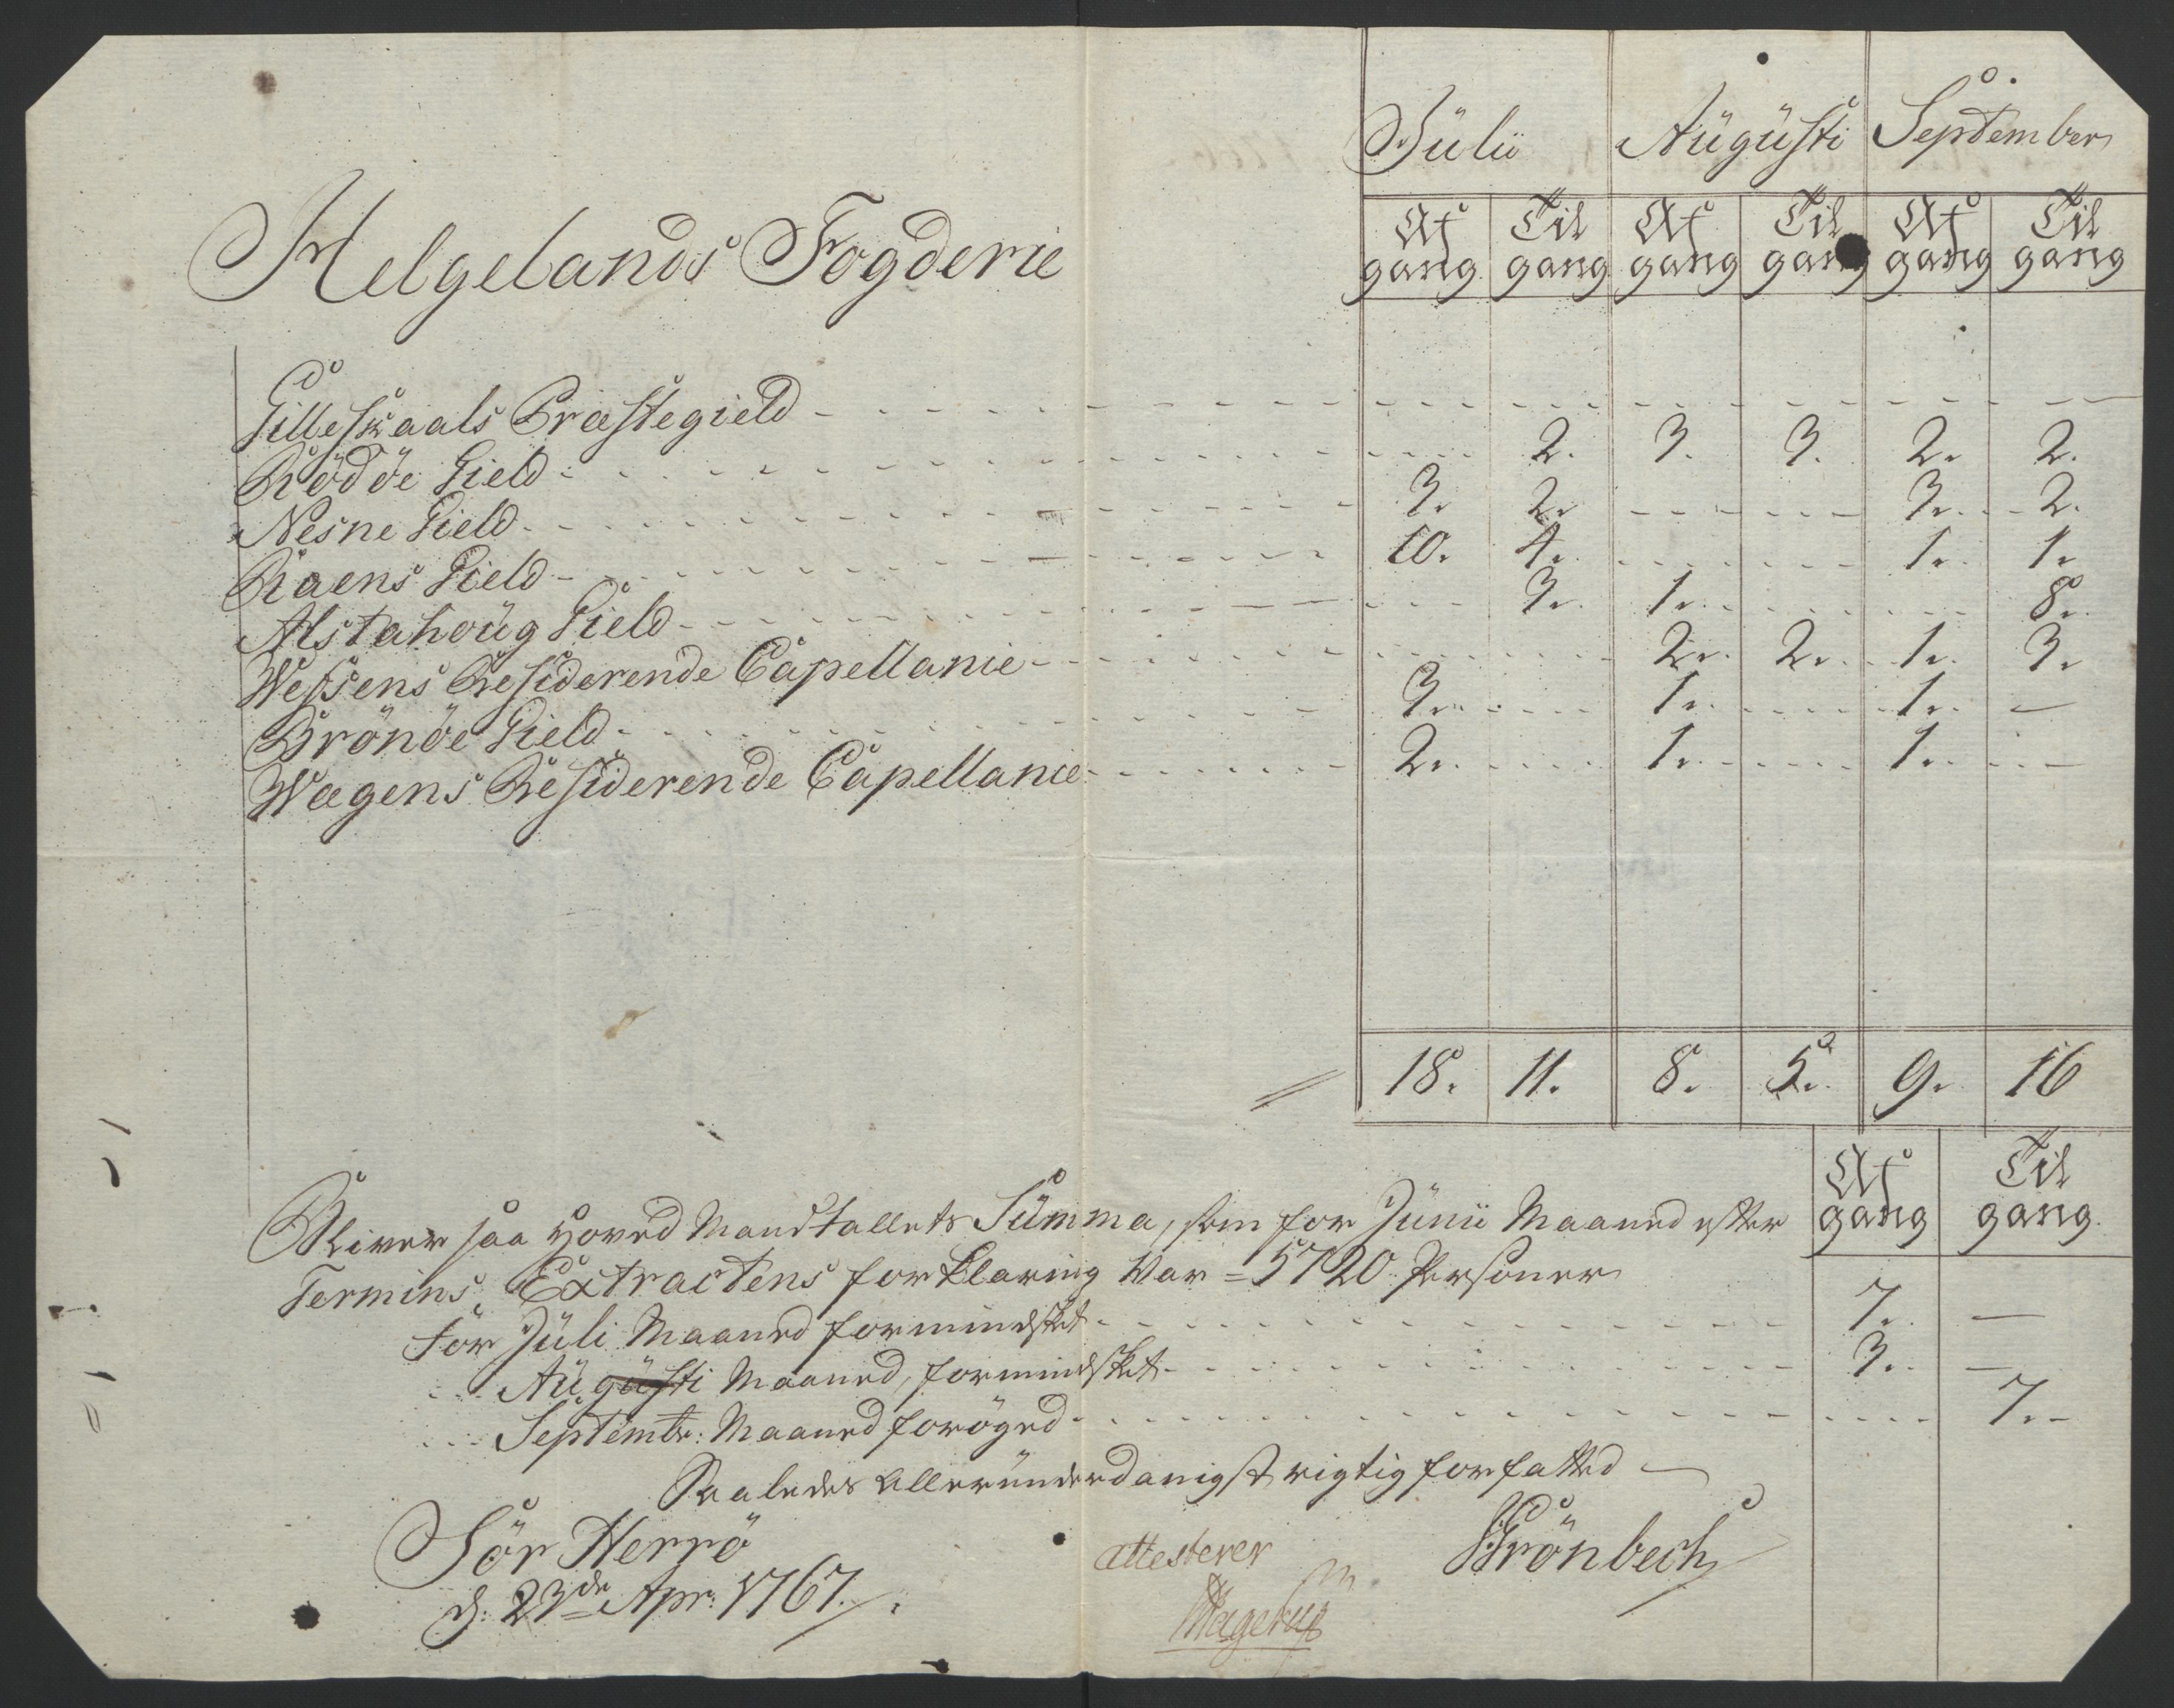 Julii Augusti September
Af Til Af Til Af Til
gang gang gang gang gang gang
Helgelands Fogderie
Gilleskaals Præstegield
Rödöe Gield 2. 3. 3. 2. 2.
Nesne Gield 3. 2. 3. 2.
Raens Gield 10. 4. 1. 1.
Alstahoug Gield 3. 1. 8.
Wefsens Residerende Capellanie 2. 2. 1. 3.
Brönöe Gield 3. 1. 1. —
Wegens Residerende Capellanie 2. 1. 1. —
18. 11. 8. 5. 9. 16
Af Til
gang gang
Bliver saa Hoved Mandtallets Summa, som for Junii Maaned efter
Termins Extractens forklaring var = 5720 Personer
for Juli Maaned formindsket 7. —
Augusti Maaned, formindsket 3. —
Septembr: Maaned forøged 7.
Saaledes allerunderdanigst rigtig forfatted
Sör Herrö
d: 23de Apr: 1767.
attesterer
Hagerup
Brönbech